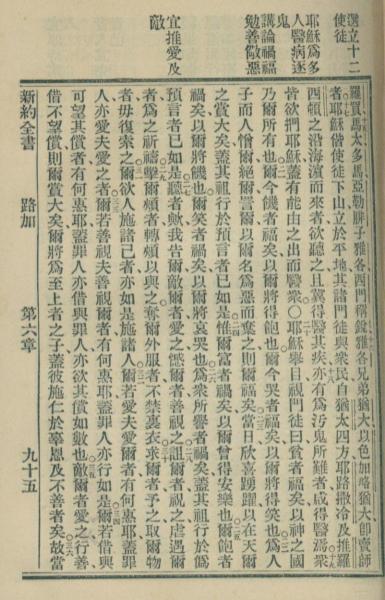 選立十二
使徒
耶穌爲多
人醫病逐
鬼
講論禍福
勉善儆惡
宜推愛及
敵
羅買馬太多馬亞勒腓子雅各西門稱銳雅各兄弟猶大以色加畧猶大卽賣師
者耶穌偕使徒下山立於平地其諸門徒與衆民自猶太四方耶路撒冷及推羅
西頓之沿海濱而來者欲聽之且冀得醫其疾亦有爲汚鬼所難者咸得醫焉衆
皆欲捫耶穌蓋有能由之出而醫衆○耶穌舉目視門徒曰貧者福矣以神之國
乃爾所有也爾今饑者福矣以爾將得飽也爾今哭者福矣以爾將得笑也爲人
子而人憎爾絕爾詈爾以爾名爲惡而棄之則爾福矣當日欣喜踴躍以在天爾
之賞大矣蓋其祖行於預言者已如是惟爾富者禍矣以爾曾得安樂也爾飽者
禍矣以爾將饑也爾笑者禍矣以爾將哀哭也爲衆所譽者禍矣蓋其祖行於僞
預言者已如是聽者歟我告爾敵爾者愛之憾爾者善視之詛爾者祝之虐遇爾
者爲之祈禱擊爾頰者轉頰以與之奪爾外服者不禁裏衣求爾者予之取爾物
者毋復索之爾欲人施諸己者亦如是施諸人爾若愛夫愛爾者有何惠耶蓋罪
人亦愛夫愛之者爾若善視夫善視爾者有何惠耶蓋罪人亦行如是爾若借與
可望其償者有何惠耶蓋罪人亦借與罪人亦欲其償如數也敵爾者愛之行善
借不望償則爾賞大矣爾將爲至上者之子蓋彼施仁於辜恩及不善者矣故當
新約全書 路加 第六章 九十五